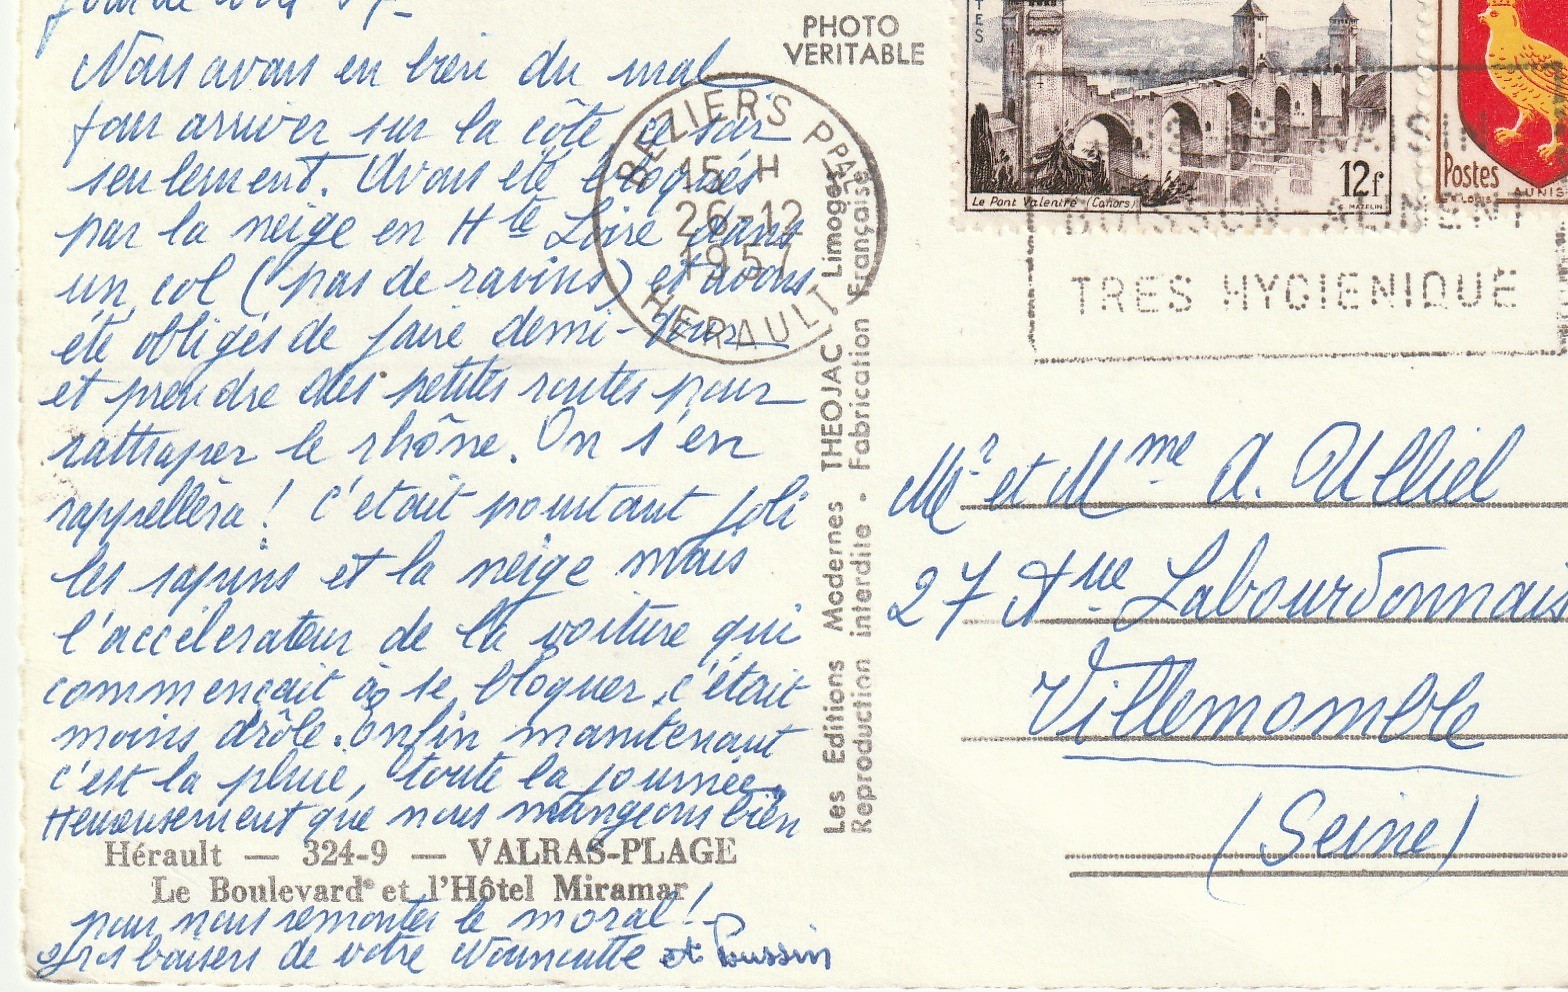 Nous avons eu bien du mal
pour arriver sur la côte, ce soir
seulement. Avons été bloqués
par la neige en Hte Loire dans
un col (pas de ravins) et avons
été obligés de faire demi-tour
et prendre des petites routes pour
rattraper le rhône. On s'en
rappellera ! C'était pourtant joli
les sapins et la neige mais
l'accélérateur de la voiture qui
commençait à se bloquer, c'était
moins drôle. Enfin maintenant
c'est la pluie, toute la journée.
Heureusement que nous mangeons bien
Hérault — 324-9 — VALRAS-PLAGE
Le Boulevard et l'Hôtel Miramar
pour nous remonter le moral !
Gros baisers de votre et Poussin
PHOTO
VERITABLE
BEZIERS PPAL
15 H
26-12
1957
HERAULT
Les Editions Modernes THEOJAC Limoges
Reproduction interdite - Fabrication Française
TES
12f
Le Pont Valentré (Cahors)
MAZELIN
Postes
AUNIS
TRES HYGIENIQUE
Mr et Mme A. Ulliel
27 Aue Labourdonnais
Villemomble
(Seine)